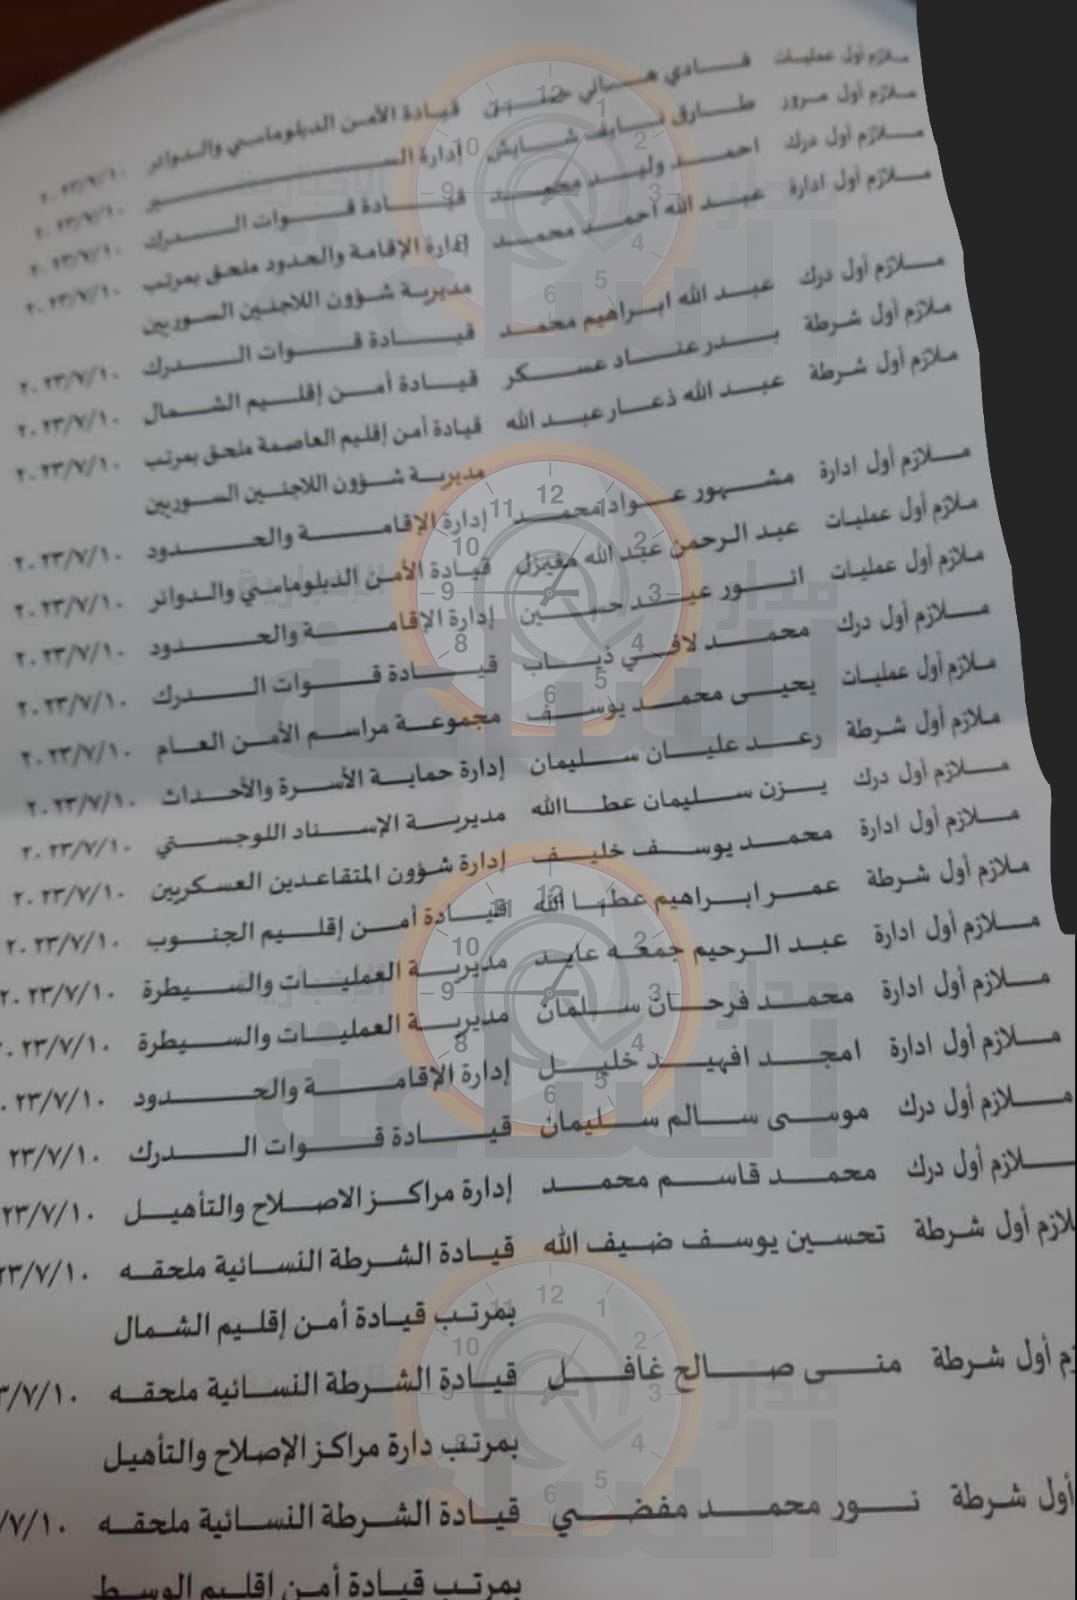 ملازم أول عمليات فادي هاني قيادة الأمن الدبلوماسي والدوائر ٢٠٢٣/٧/١٠
ملازم أول مرور طارق نايف شايش إدارة السير ٢٠٢٣/٧/١٠
ملازم أول درك احمد وليد محمد قيادة قوات الدرك ٢٠٢٣/٧/١٠
ملازم أول ادارة عبد الله احمد محمد إدارة الإقامة والحدود ملحق بمرتب ٢٠٢٣/٧/١٠
مديرية شؤون اللاجئين السوريين
ملازم أول درك عبد الله ابراهيم محمد قيادة قوات الدرك ٢٠٢٣/٧/١٠
ملازم أول شرطة بدر عناد عسكر قيادة أمن إقليم الشمال ٢٠٢٣/٧/١٠
ملازم أول شرطة عبد الله ذعار عبد الله قيادة أمن إقليم العاصمة ملحق بمرتب ٢٠٢٣/٧/١٠
مديرية شؤون اللاجئين السوريين
ملازم أول ادارة مشهور عواد محمد إدارة الإقامة والحدود ٢٠٢٣/٧/١٠
ملازم أول عمليات عبد الرحمن عبد الله مفيزل قيادة الأمن الدبلوماسي والدوائر ٢٠٢٣/٧/١٠
ملازم أول عمليات انور عيد حسين إدارة الإقامة والحدود ٢٠٢٣/٧/١٠
ملازم أول درك محمد لافي ذياب قيادة قوات الدرك ٢٠٢٣/٧/١٠
ملازم أول عمليات يحيى محمد يوسف مجموعة مراسم الأمن العام ٢٠٢٣/٧/١٠
ملازم أول شرطة رعد عليان سليمان إدارة حماية الأسرة والأحداث ٢٠٢٣/٧/١٠
ملازم أول درك يزن سليمان عطاالله مديرية الإسناد اللوجستي ٢٠٢٣/٧/١٠
ملازم أول ادارة محمد يوسف خليف إدارة شؤون المتقاعدين العسكريين ٢٠٢٣/٧/١٠
ملازم أول شرطة عمر ابراهيم عطا الله قيادة أمن إقليم الجنوب ٢٠٢٣/٧/١٠
ملازم أول ادارة عبد الرحيم جمعه عايد مديرية العمليات والسيطرة ٢٠٢٣/٧/١٠
ملازم أول ادارة محمد فرحان سلمان مديرية العمليات والسيطرة ٠٢٣/٧/١٠
ملازم أول ادارة امجد افهيد خليل إدارة الإقامة والحدود ٠٢٣/٧/١٠
ملازم أول درك موسى سالم سليمان قيادة قوات الدرك ٢٣/٧/١٠
لازم أول درك محمد قاسم محمد إدارة مراكز الاصلاح والتأهيل ٢٣/٧/١٠
لازم أول شرطة تحسين يوسف ضيف الله قيادة الشرطة النسائية ملحقه ٢٣/٧/١٠
بمرتب قيادة أمن إقليم الشمال
زم أول شرطة منى صالح غافل قيادة الشرطة النسائية ملحقه ٣/٧/١٠
بمرتب دارة مراكز الإصلاح والتأهيل
أول شرطة نور محمد مفضي قيادة الشرطة النسائية ملحقه /٧/١٠
بمرتب قيادة أمن إقليم الوسط